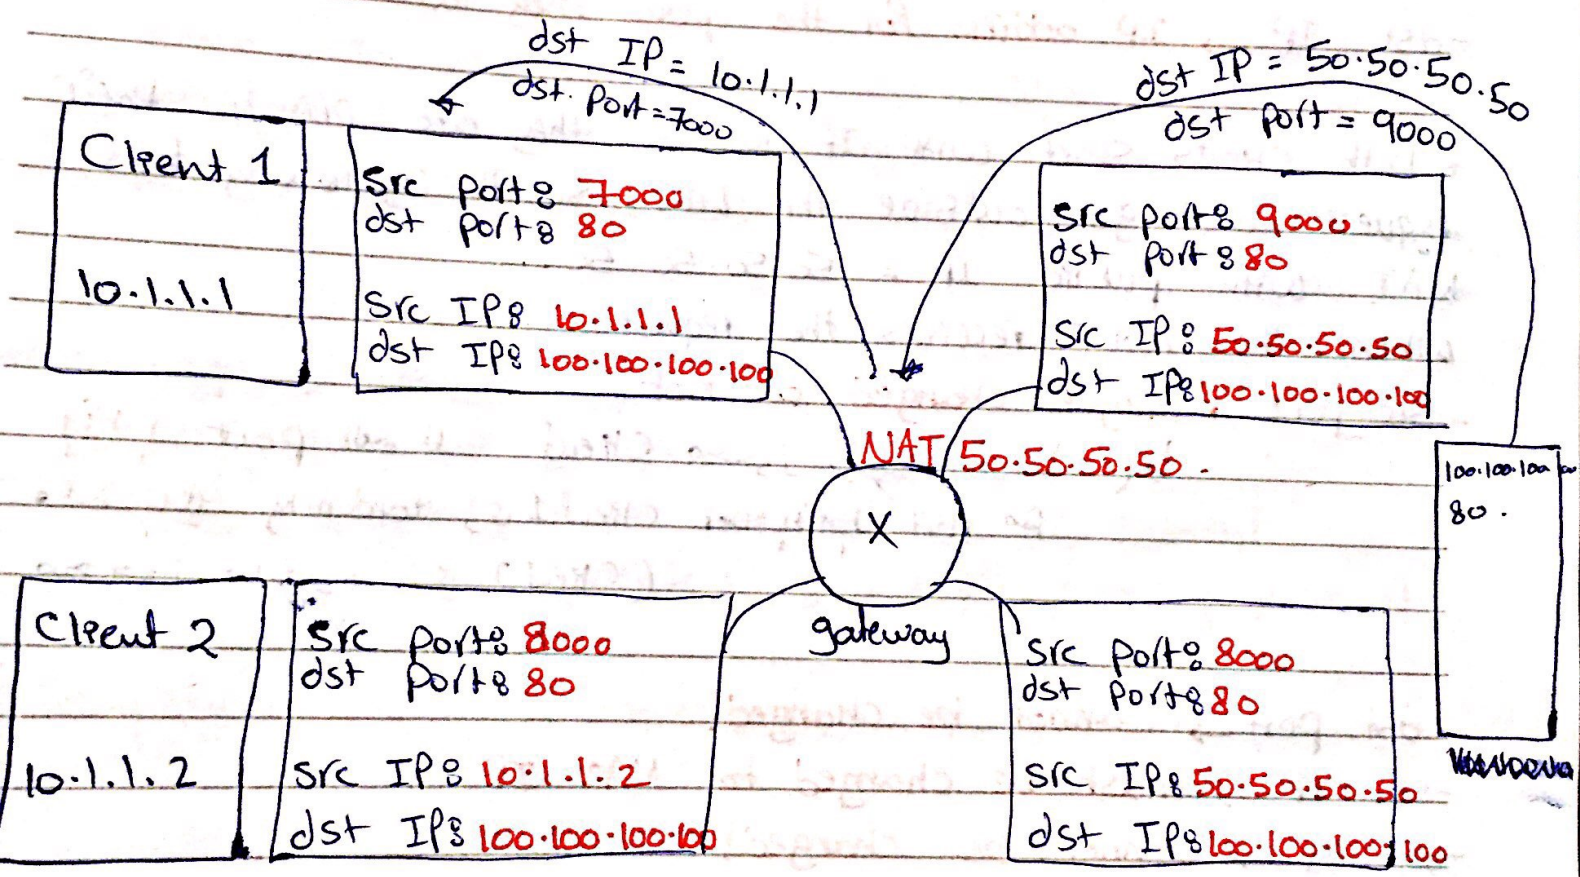 dst IP = 10.1.1.1
dst. Port = 7000
dst IP = 50.50.50.50
dst port = 9000
Client 1
10.1.1.1
Src port: 7000
dst port: 80
Src IP: 10.1.1.1
dst IP: 100.100.100.100
Src port: 9000
dst port: 80
Src IP: 50.50.50.50
dst IP: 100.100.100.100
NAT 50.50.50.50.
X
gateway
100.100.100.100
80.
Client 2
10.1.1.2
Src port: 8000
dst port: 80
Src IP: 10.1.1.2
dst IP: 100.100.100.100
Src port: 8000
dst port: 80
Src IP: 50.50.50.50
dst IP: 100.100.100.100